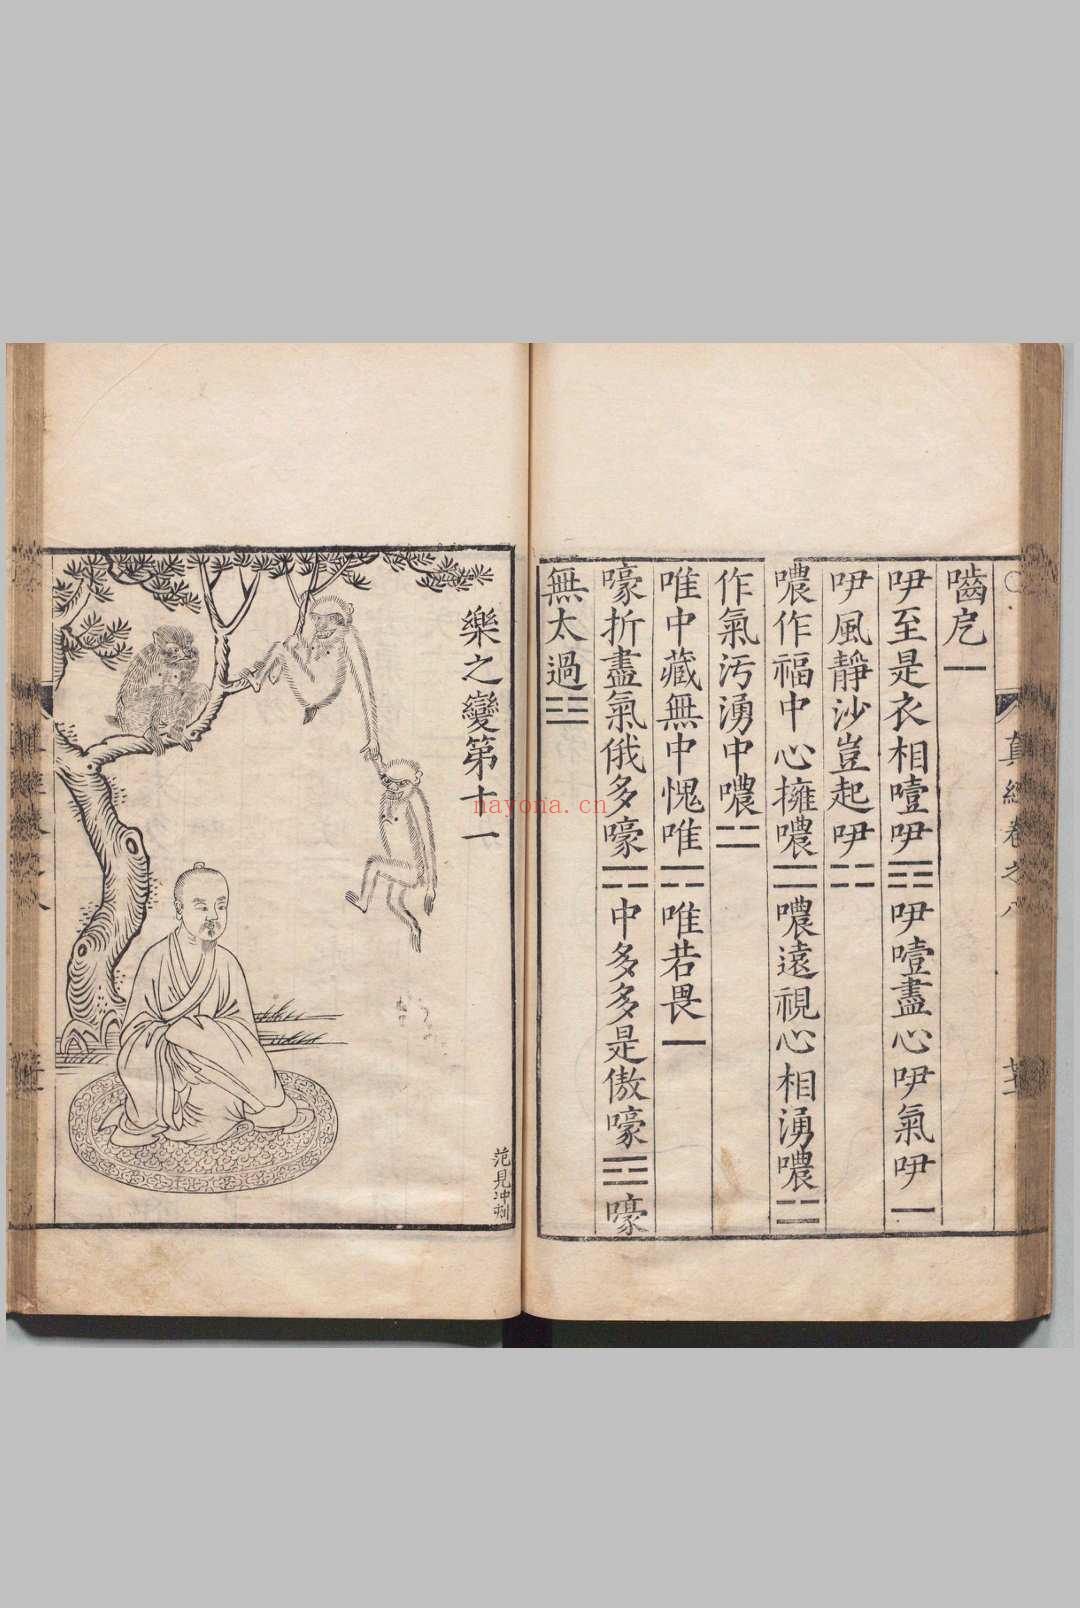 嚙皀一
吚至是衣相噎吚☲吚噎盡心吚氣吚一
吚風靜沙豈起吚⚏
噥作福中心擁噥⚌噥遠視心相湧噥⚌
作氣污湧中噥⚌
唯中藏無中愧唯⚍唯若畏一
嚎折盡氣俄多嚎⚍中多多是傲嚎☲嚎
無太過☵
真經卷之八
樂之變第十一
范見冲刊
nayona.cn